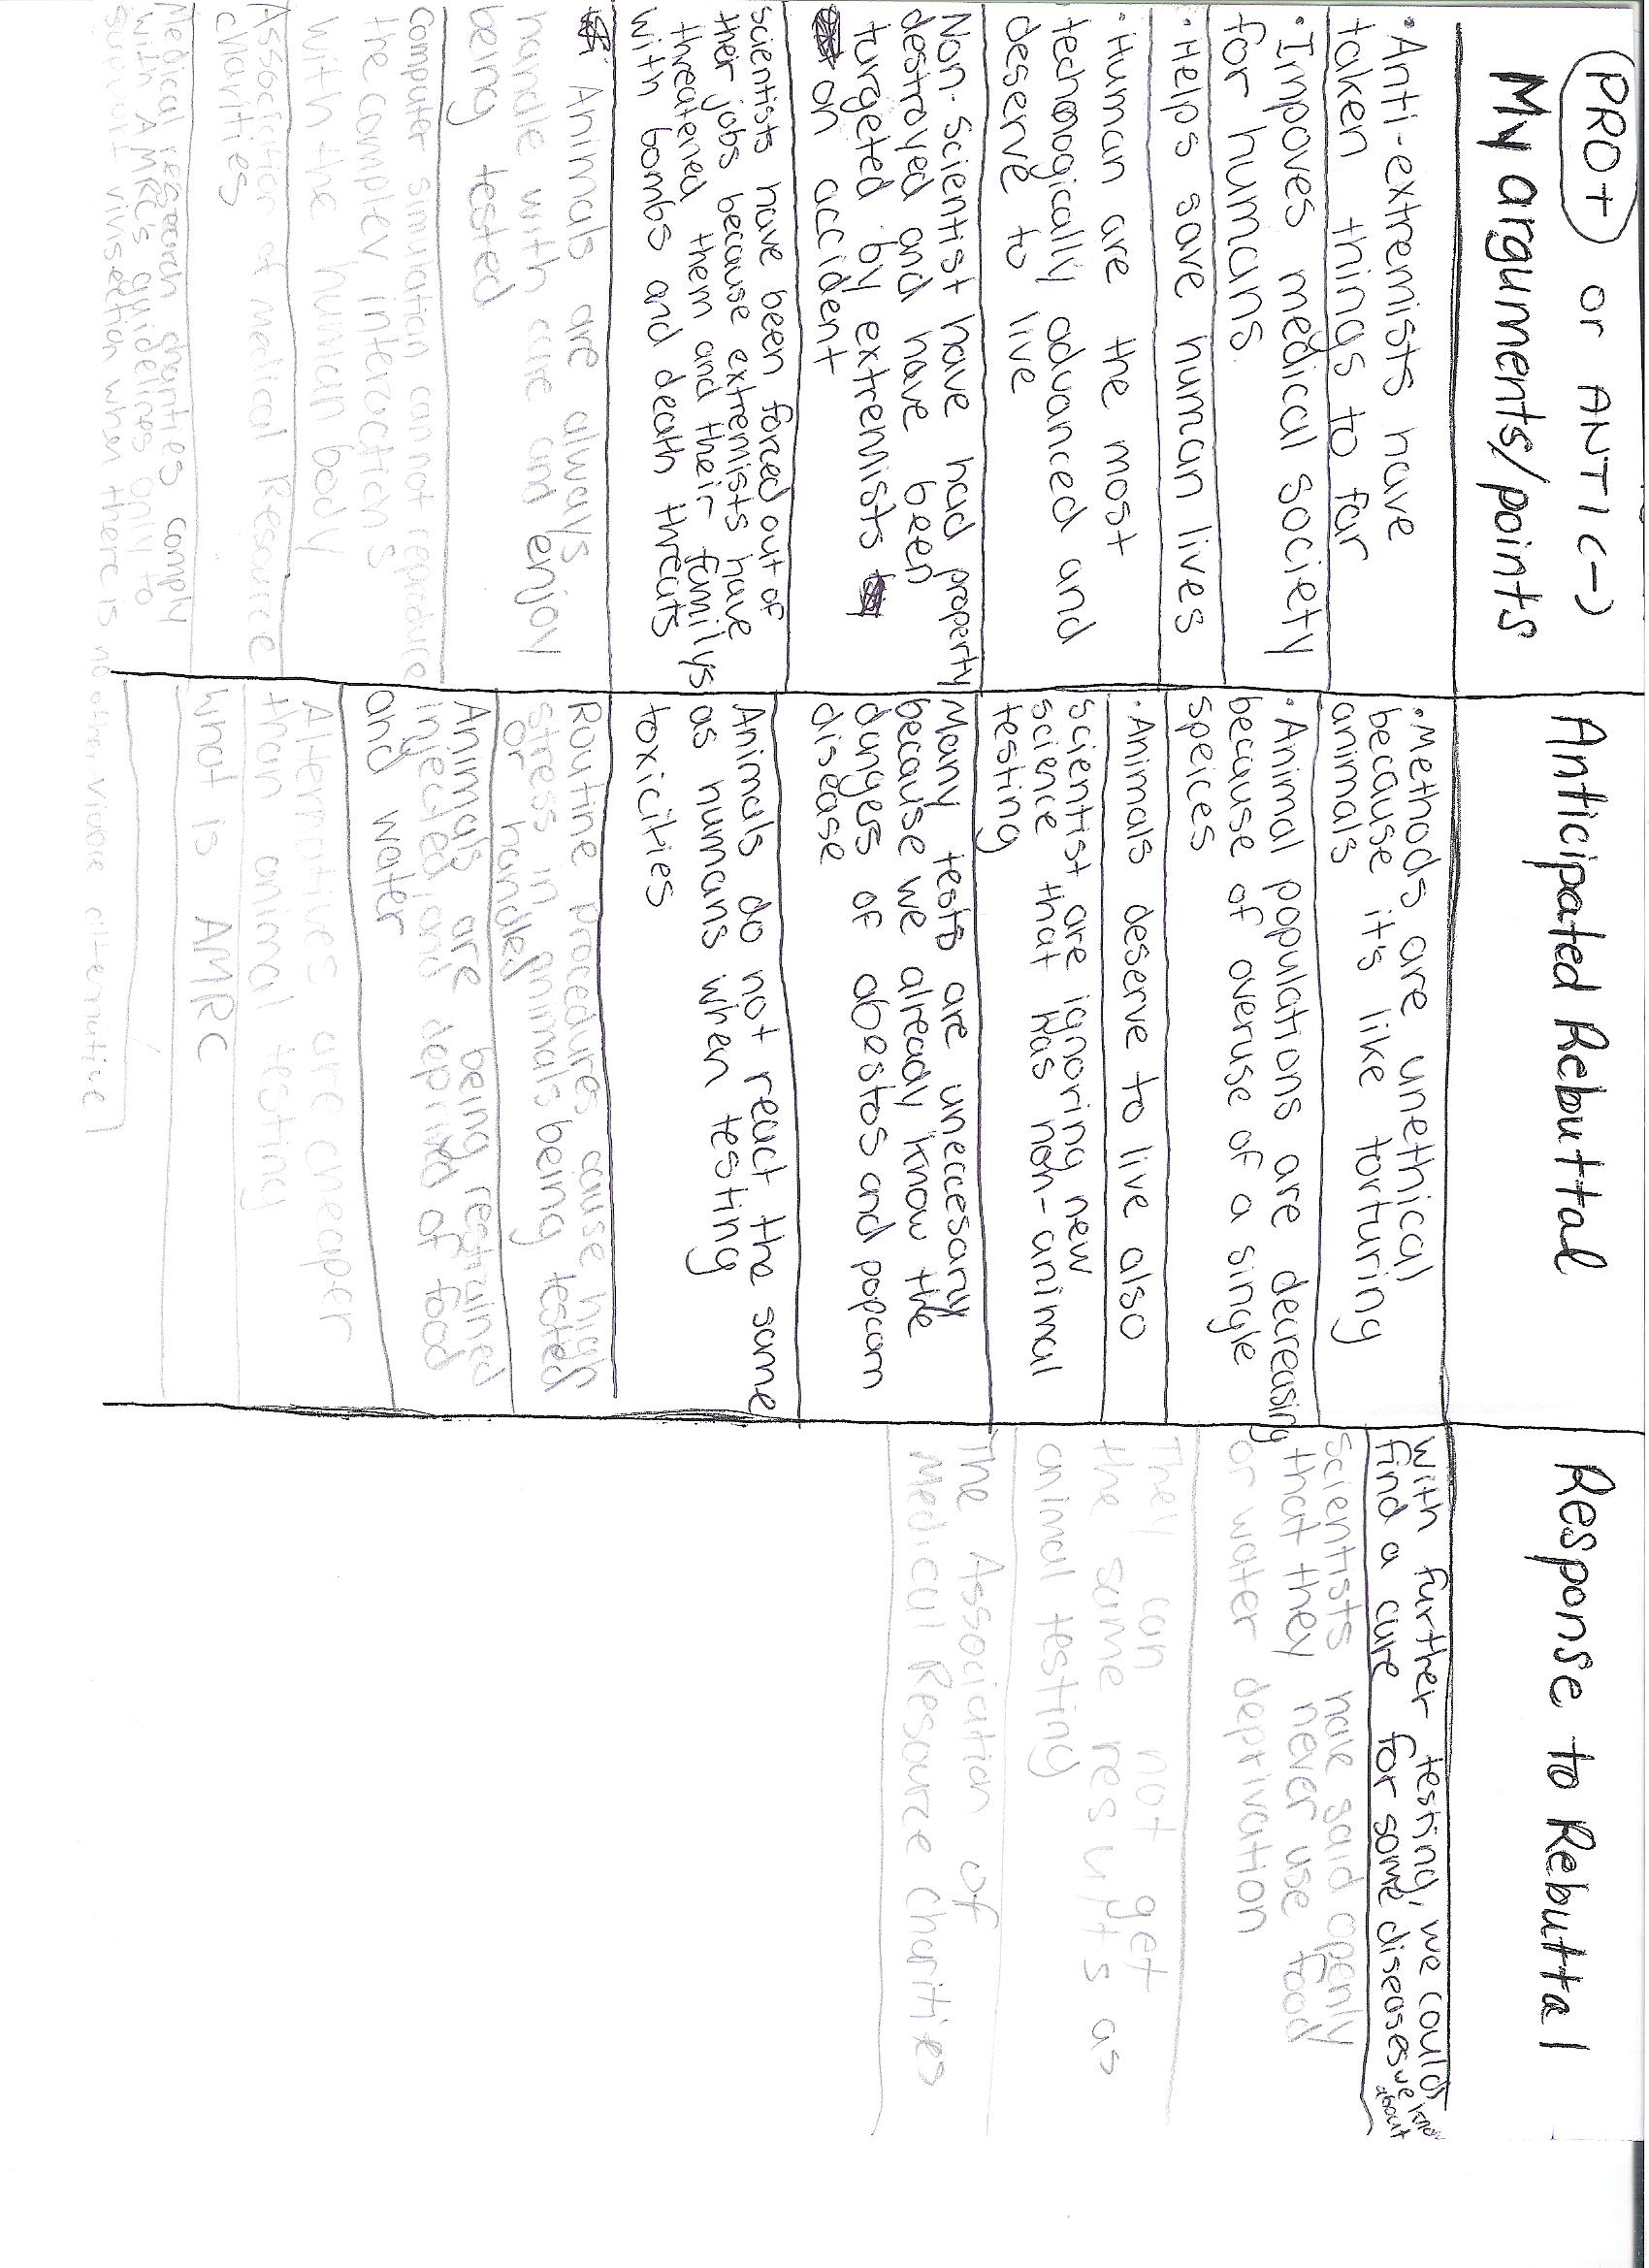 PRO+ or ANTI(-)
My arguments/points
• Anti-extremists have
taken things to far
• Impoves medical society
for humans.
• Helps save human lives
• Human are the most
techonogically advanced and
deserve to live
Non-Scientist have had property
destrayed and have been
turgeted by extremists
on accident
scientists have been forced out of
their jobs because extremists have
threatened them and their familys
with bombs and death threats
Animals are always
handle with care and enjoy
being tested
Computer simulation cannot reproduce
the complex interactions
with the human body
Association of medical Resource
Charities
Medical research charities comply
with AMRC's guidelines only to
support vivisection when there is
no other viable alternative
Anticipated Rebuttal
• Methods are unethical
because it's like torturing
animals
• Animal populations are decreasing
because of overuse of a single
speices
• Animals deserve to live also
Scientist are ignoring new
science that has non-animal
testing
Many tests are uneccesary
because we already know the
dangers of abestos and popcorn
disease
Animals do not react the same
as humans when testing
toxicities
Routine procedures cause high
stress in animals being tested
or handled
Animals are being restrained
injected, and deprived of food
and water
Alternatives are cheaper
than animal testing
what is AMRC
Response to Rebuttal
With further testing, we could
find a cure for some diseases we know
about
Scientists have said openly
that they never use food
or water deprivation
They can not get
the same results as
animal testing
The Association of
Medical Resource Charities